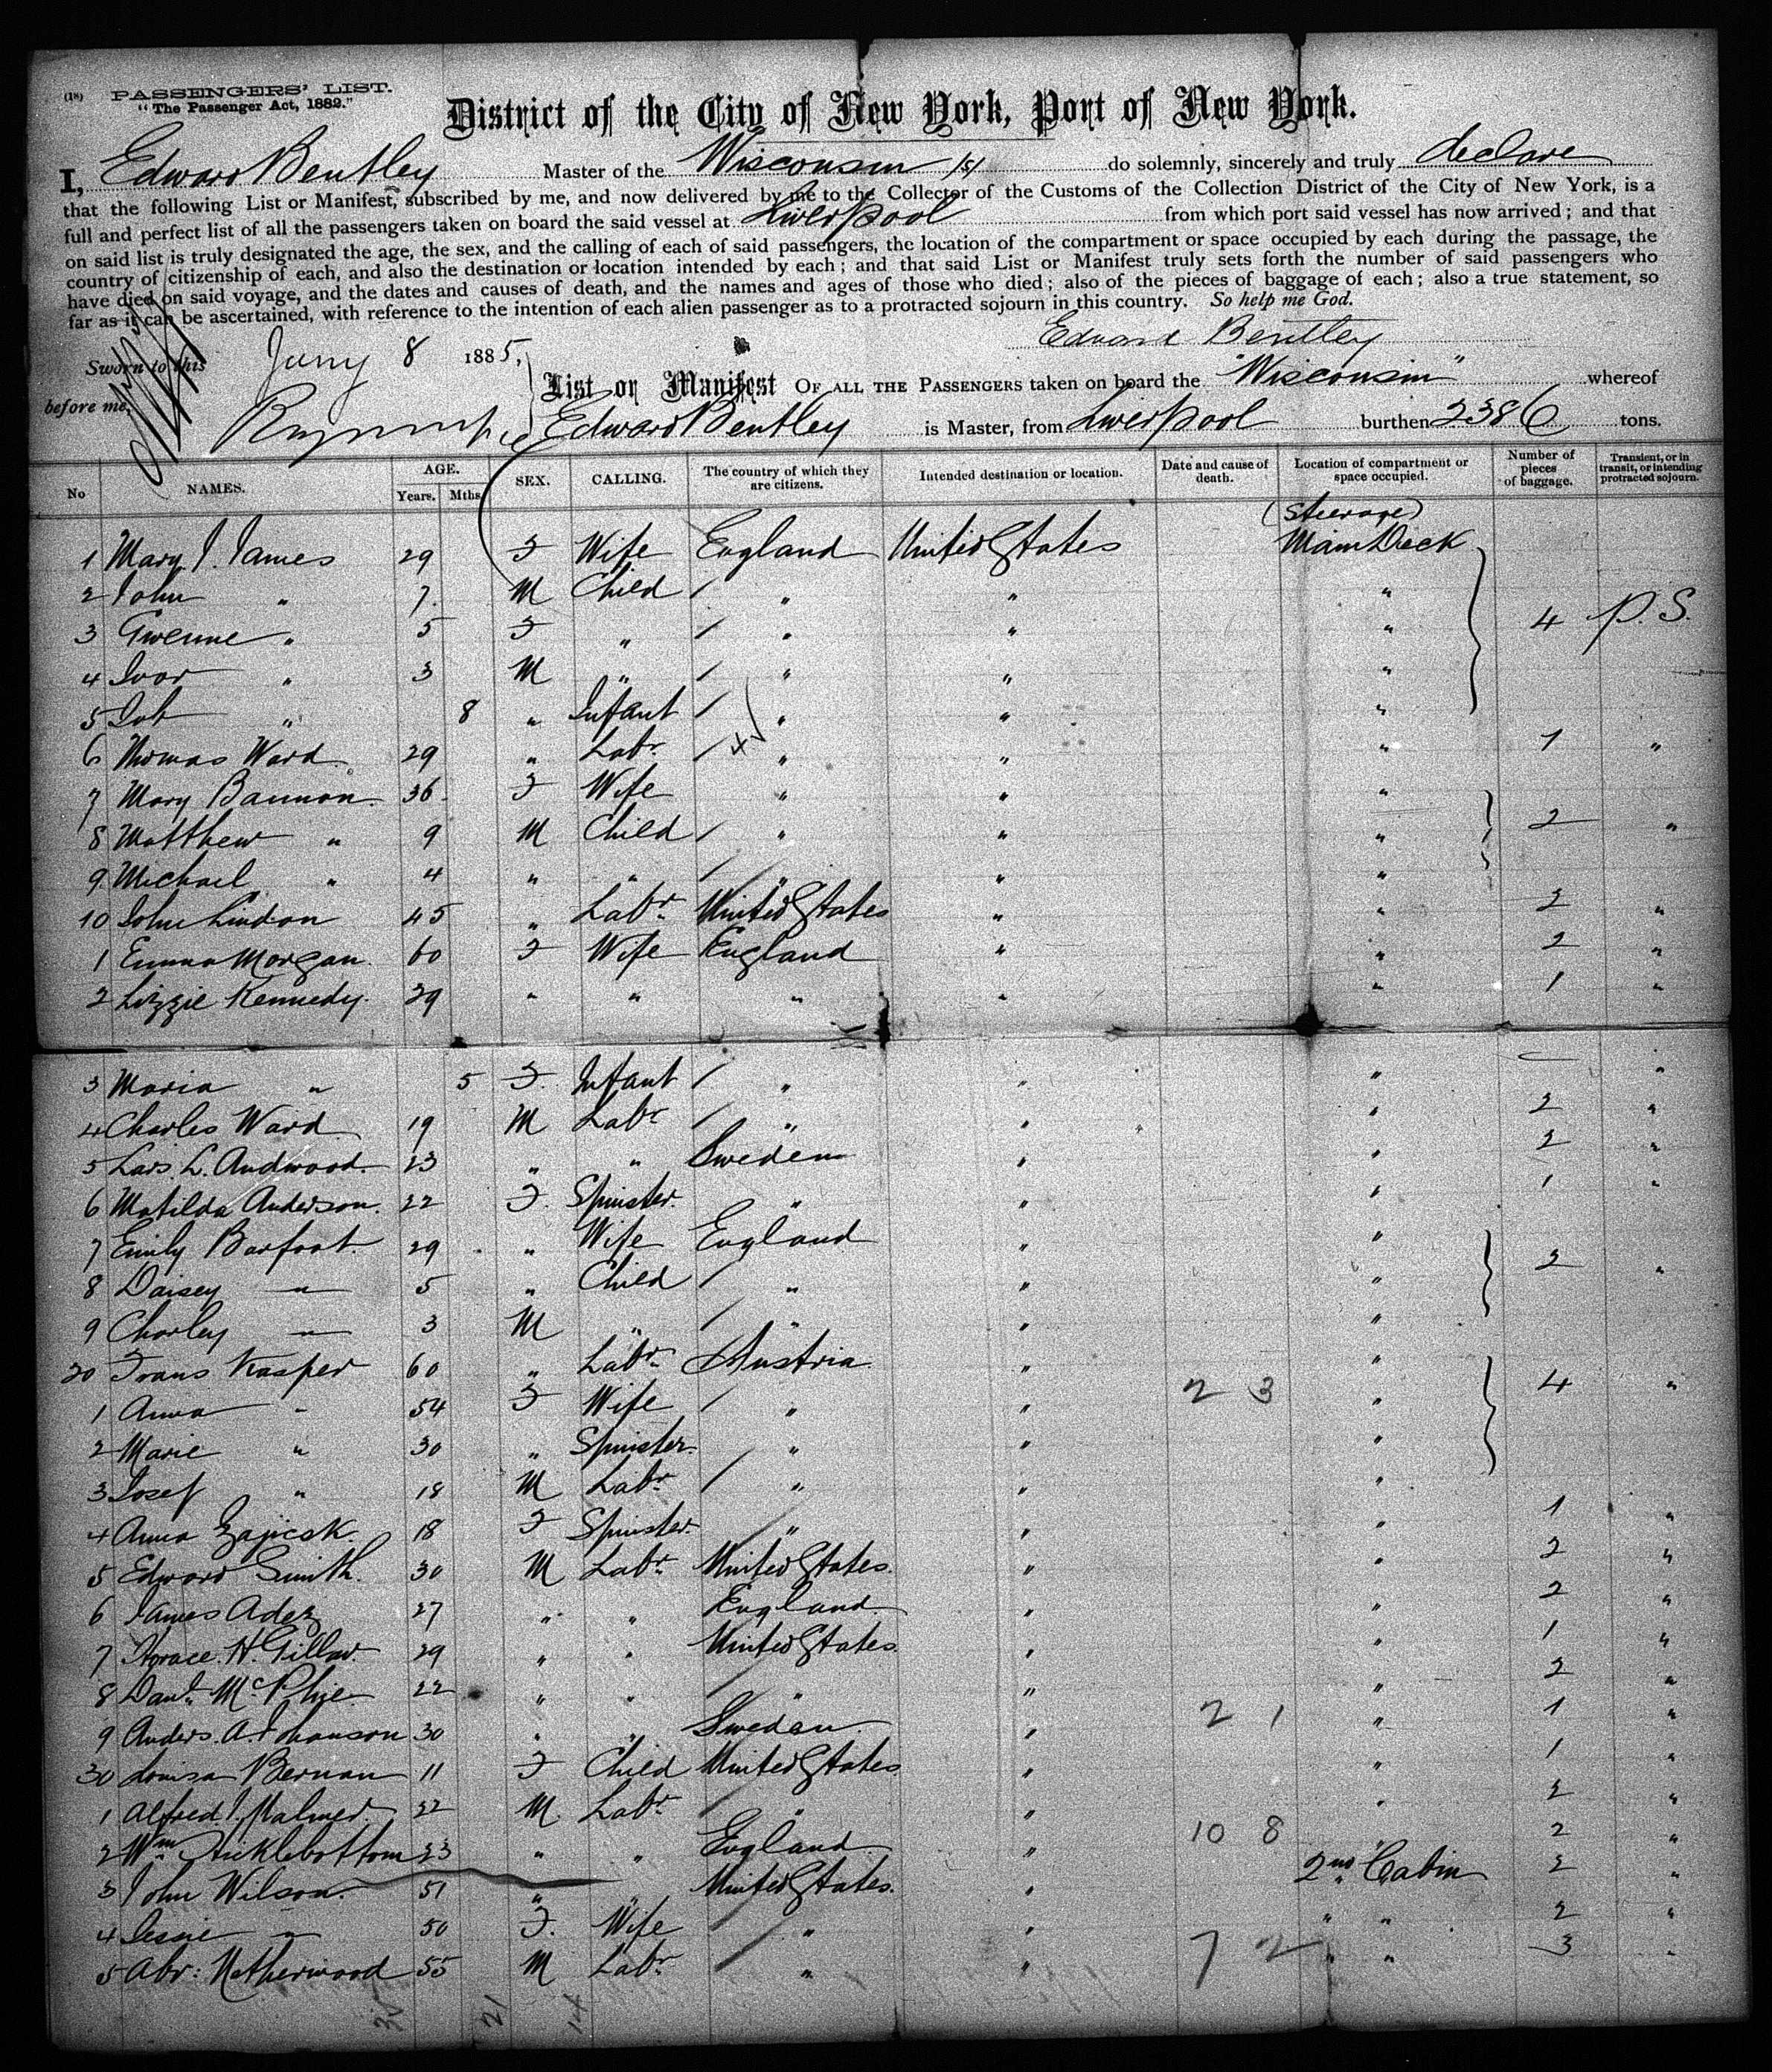 (18) PASSENGERS' LIST.
"The Passenger Act, 1882."
District of the City of New York, Port of New York.
I, Edward Bentley Master of the Wisconsin (s) do solemnly, sincerely and truly declare
that the following List or Manifest, subscribed by me, and now delivered by me to the Collector of the Customs of the Collection District of the City of New York, is a
full and perfect list of all the passengers taken on board the said vessel at Liverpool from which port said vessel has now arrived; and that
on said list is truly designated the age, the sex, and the calling of each of said passengers, the location of the compartment or space occupied by each during the passage, the
country of citizenship of each, and also the destination or location intended by each; and that said List or Manifest truly sets forth the number of said passengers who
have died on said voyage, and the dates and causes of death, and the names and ages of those who died; also of the pieces of baggage of each; also a true statement, so
far as it can be ascertained, with reference to the intention of each alien passenger as to a protracted sojourn in this country. So help me God.
Edward Bentley
Sworn to this Jany 8 1885,
before me
List or Manifest OF ALL THE PASSENGERS taken on board the "Wisconsin" whereof
Edward Bentley is Master, from Liverpool burthen 2386 tons.
No NAMES. AGE. Years. Mths. SEX. CALLING. The country of which they are citizens. Intended destination or location. Date and cause of death. Location of compartment or space occupied. Number of pieces of baggage. Transient, or in transit, or intending protracted sojourn.
(Steerage)
1 Mary J. James 29 F Wife England United States Main Deck
2 John " 7 M Child / " " "
3 Gwenne " 5 F " / " " " 4 P.S.
4 Ivor " 3 M " / " " "
5 Job " 8 " Infant / " " "
6 Thomas Ward 29 " Labr / 4 " " " 1 "
7 Mary Bannon 36 F Wife " " "
8 Matthew " 9 M Child / " " " 2 "
9 Michael " 4 " " / " " "
10 John Lindon 45 " Labr United States " " 2 "
1 Emma Morgan 60 F Wife England " " 2 "
2 Lizzie Kennedy 29 " " " " " 1 "
3 Maria " 5 F Infant / " " " "
4 Charles Ward 19 M Labr / " " " 2 "
5 Lars L. Andwood 23 " " Sweden " " 2 "
6 Matilda Anderson 22 F Spinster " " " 1 "
7 Emily Barfoot 29 " Wife England " "
8 Daisey " 5 " Child / " " " 2 "
9 Charley " 3 M " / " " "
20 Frans Kasper 60 " Labr Austria " "
1 Anna " 54 F Wife / " " 2 3 " 4 "
2 Marie " 30 " Spinster / " " "
3 Josef " 18 M Labr / " " "
4 Anna Zajicsk 18 F Spinster / " " " 1 "
5 Edward Smith 30 M Labr United States " " 2 "
6 James Adez 27 " " England " " 2 "
7 Horace H. Gillow 29 " " United States " " 1 "
8 Danl McPhie 22 " " / " " " 2 "
9 Anders A. Johanson 30 " " Sweden " 2 1 " 1 "
30 Louisa Bernan 11 F Child United States " " 1 "
1 Alfred J. Malmer 22 M Labr / " " " 2 "
2 Wm Hicklebottom 23 " " England " 10 8 " 2 "
3 John Wilson 51 " " United States " 2nd Cabin 2 "
4 Jessie " 50 F Wife / " " " " 2 "
5 Abr: Netherwood 55 M Labr / " " 7 2 " " 3 "
21 14